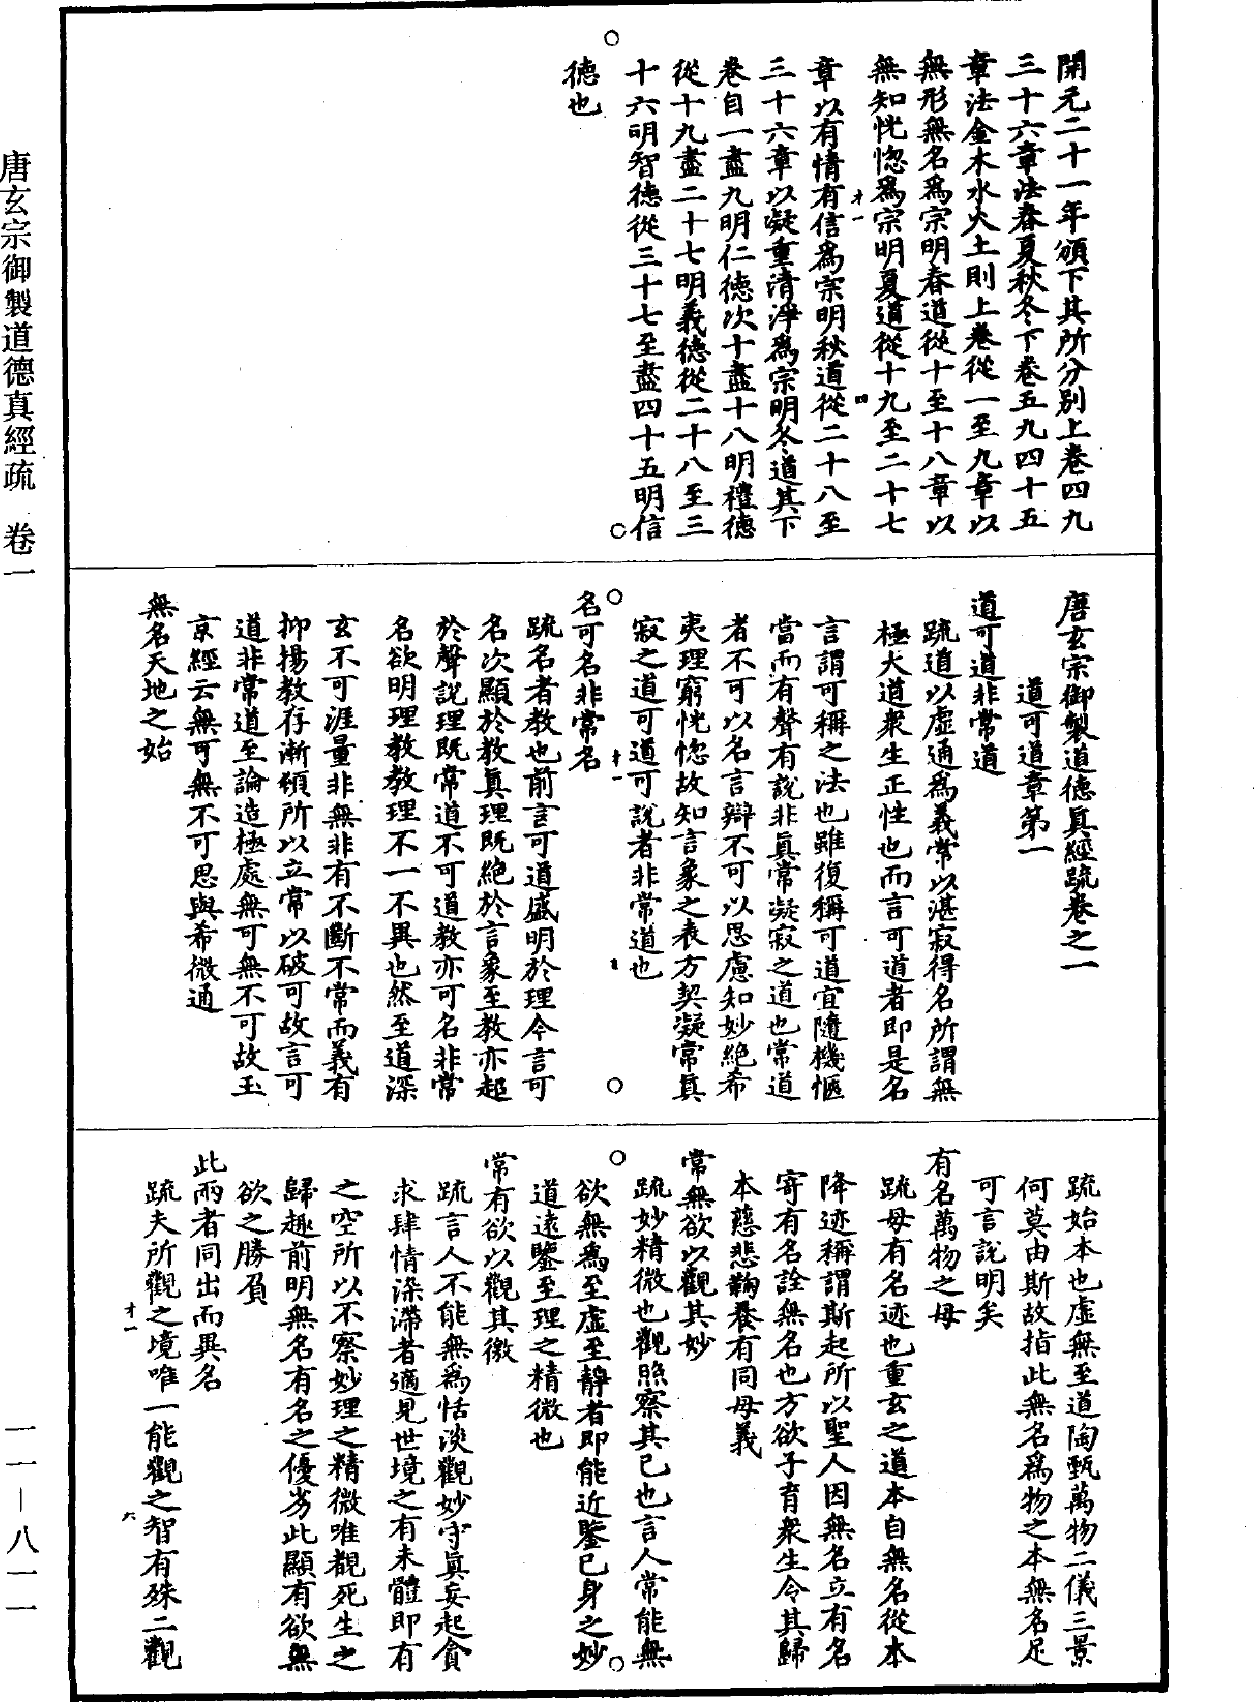 開元二十一年頒下其所分別上卷四九
三十六章法春夏秋冬下卷五九四十五
章法金木水火土則上卷從一至九章以
無形無名為宗明春道從十至十八章以
無知恍惚為宗明夏道從十九至二十七
章以有情有信為宗明秋道從二十八至
三十六章以凝重清淨為宗明冬道其下
卷自一盡九明仁德次十盡十八明禮德
從十九盡二十七明義德從二十八至三
十六明智德從三十七至盡四十五明信
德也
唐玄宗御製道德真經疏卷之一
道可道章第一
道可道非常道
疏道以虛通為義常以湛寂得名所謂無
極大道眾生正性也而言可道者即是名
言謂可稱之法也雖復稱可道宜隨機愜
當而有聲有說非真常凝寂之道也常道
者不可以名言辯不可以思慮知妙絕希
夷理窮恍惚故知言象之表方契凝常真
寂之道可道可說者非常道也
名可名非常名
疏名者教也前言可道盛明於理今言可
名次顯於教真理既絕於言象至教亦超
於聲說理既常道不可道教亦可名非常
名欲明理教教理不一不異也然至道深
玄不可涯量非無非有不斷不常而義有
抑揚教存漸頓所以立常以破可故言可
道非常道至論造極處無可無不可故玉
京經云無可無不可思與希微通
無名天地之始
疏始本也虛無至道陶甄萬物二儀三景
何莫由斯故指此無名為物之本無名足
可言說明矣
有名萬物之母
疏母有名迹也重玄之道本自無名從本
降迹稱謂斯起所以聖人因無名立有名
寄有名詮無名也方欲子育眾生令其歸
本慈悲鞠養有同母義
常無欲以觀其妙
疏妙精微也觀照察其己也言人常能無
欲無為至虛至靜者即能近鑒己身之妙
道遠鑒至理之精微也
常有欲以觀其徼
疏言人不能無為恬淡觀妙守真妄起貪
求肆情染滯者適見世境之有未體即有
之空所以不察妙理之精微唯覩死生之
歸趣前明無名有名之優劣此顯有欲無
欲之勝負
此兩者同出而異名
疏夫所觀之境唯一能觀之智有殊二觀
唐玄宗御製道德真經疏 卷一
一一—八一一